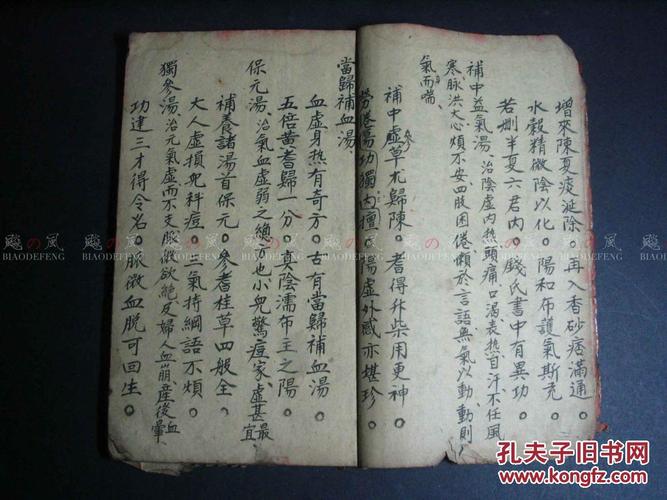 增來陳夏痰涎除。再入香砂痞滿通。
水穀精微陰以化。陽和布護氣斯充。
若刪半夏六君內。錢氏書中有異功。
補中益氣湯、治陰虛內熱頭痛、口渴表熱自汗不任風
寒脉洪大心煩不安四肢困倦懶於言語無氣以動動則
氣而喘、
補中參虛草朮歸陳。耆得升柴用更神
勞倦傷功獨內擅。陽虛外感亦堪珍。
當歸補血湯、
血虛身熱有奇方。古有當歸補血湯
五倍黃耆歸一分。真陰濡布主之陽。
保元湯、治氣血虛弱之總方也小兒驚痘家、虛甚最宜
補養諸湯首保元。參耆桂草四般全。
大人虛損兒科痘。二氣持綱語不煩。
獨參湯、治元氣虛而不支脉微欲絕及婦人血崩、產後血暈
功建三才得令名。脈微血脫可回生。
飈の風
BIAODEFENG
飈の風
BIAODEFENG
飈の風
BIAODEFENG
飈の風
BIAODEFENG
孔夫子旧书网
www.kongfz.com